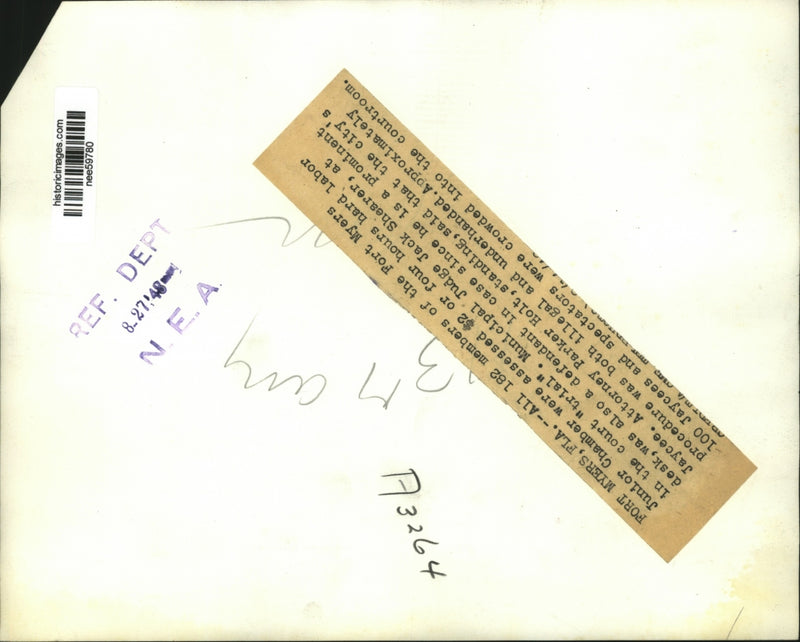 historicimages.com
nee59780
REF. DEPT
8-27-'48
N. E. A.
FORT MYERS, FLA.--All 182 members of the Fort Myers
Junior Chamber were assessed $2 or four hours hard labor
in the court "trial". Municipal Judge Jack Shearer, at
desk, was also a defendant in case since he is a prominent
Jaycee. Attorney Parker Holt, standing, said that the city's
procedure was both illegal and underhanded. Approximately
100 Jaycees and spectators were crowded into the courtroom.
A3264